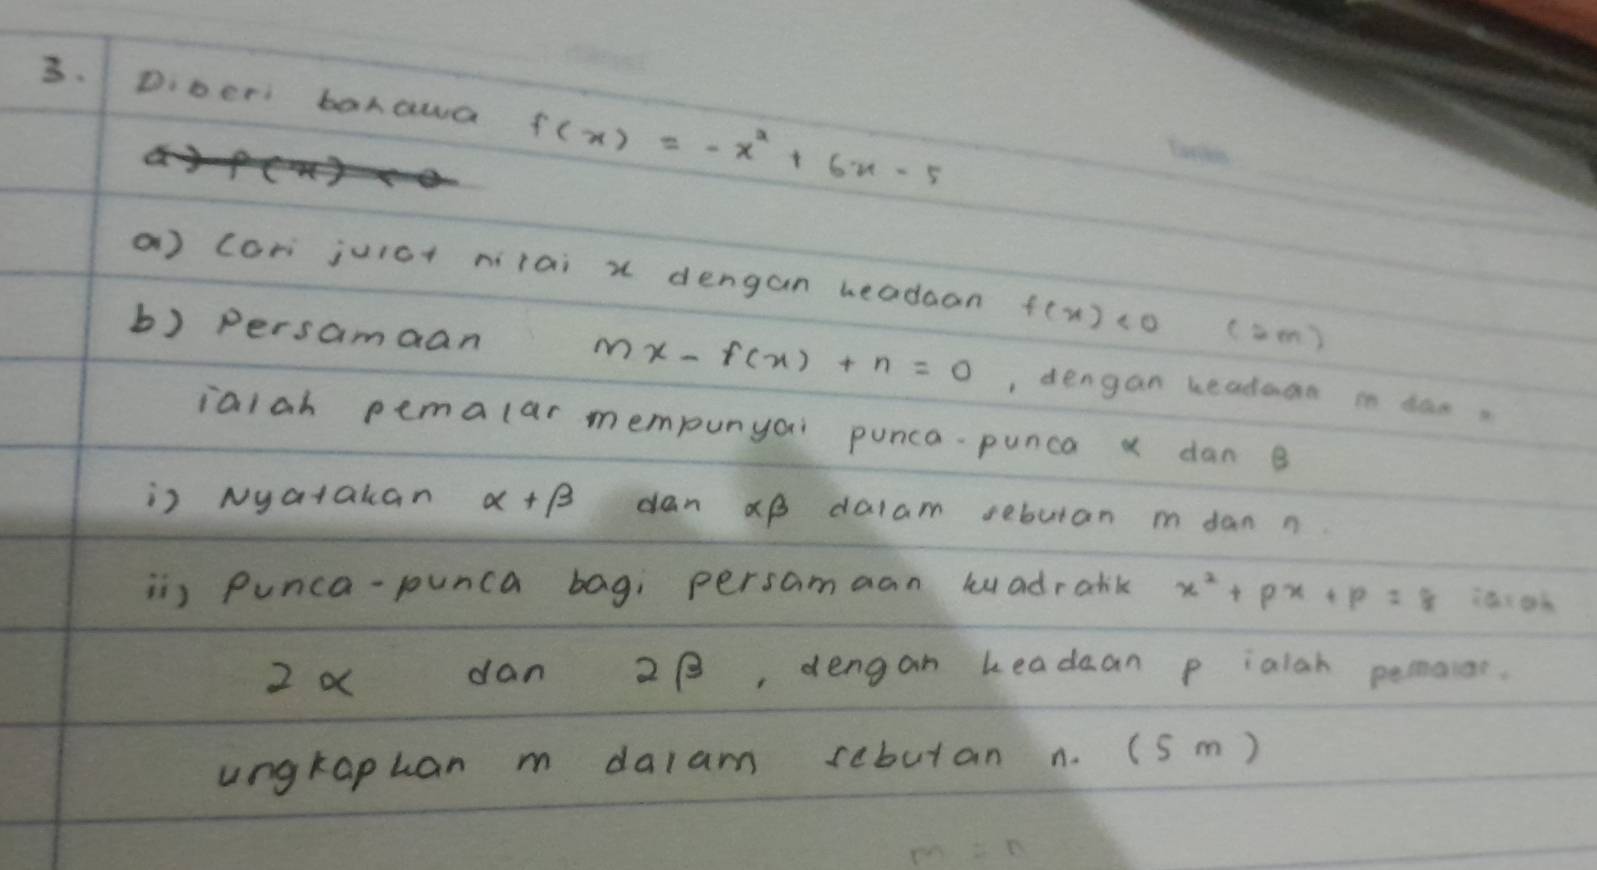 3. Diberi bahawa f(x) = -x² + 6x - 5
a) f(x) < 0
a) Cari julat nilai x dengan keadaan f(x) < 0 (2m)
b) Persamaan mx - f(x) + n = 0, dengan keadaan m dan n
ialah pemalar mempunyai punca-punca α dan β
i) Nyatakan α + β dan αβ dalam sebutan m dan n.
ii) Punca-punca bagi persamaan kuadratik x² + px + p = 8 ialah
2α dan 2β, dengan keadaan p ialah pemalar.
ungkapkan m dalam sebutan n. (5 m)
m = n